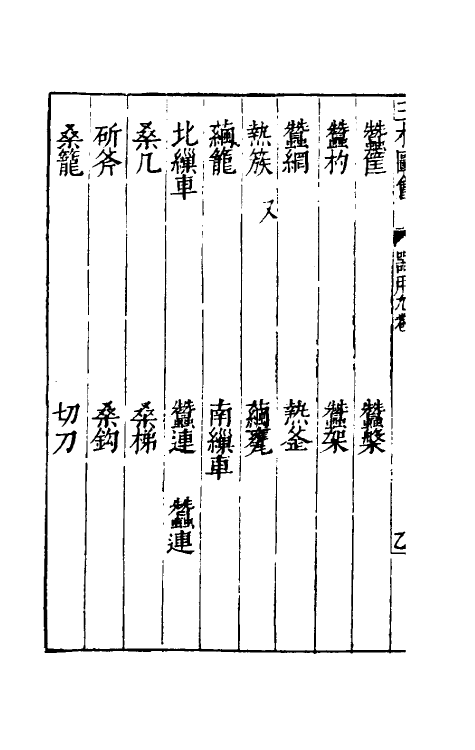 三才圖會 器用九卷 乙
蠶筐 蠶槃
蠶杓 蠶架
蠶網 熱釜
熱族 又 繭甕
繭籠 南繅車
北繅車 蠶連 蠶連
桑几 桑梯
斫斧 桑鈎
桑籠 切刀